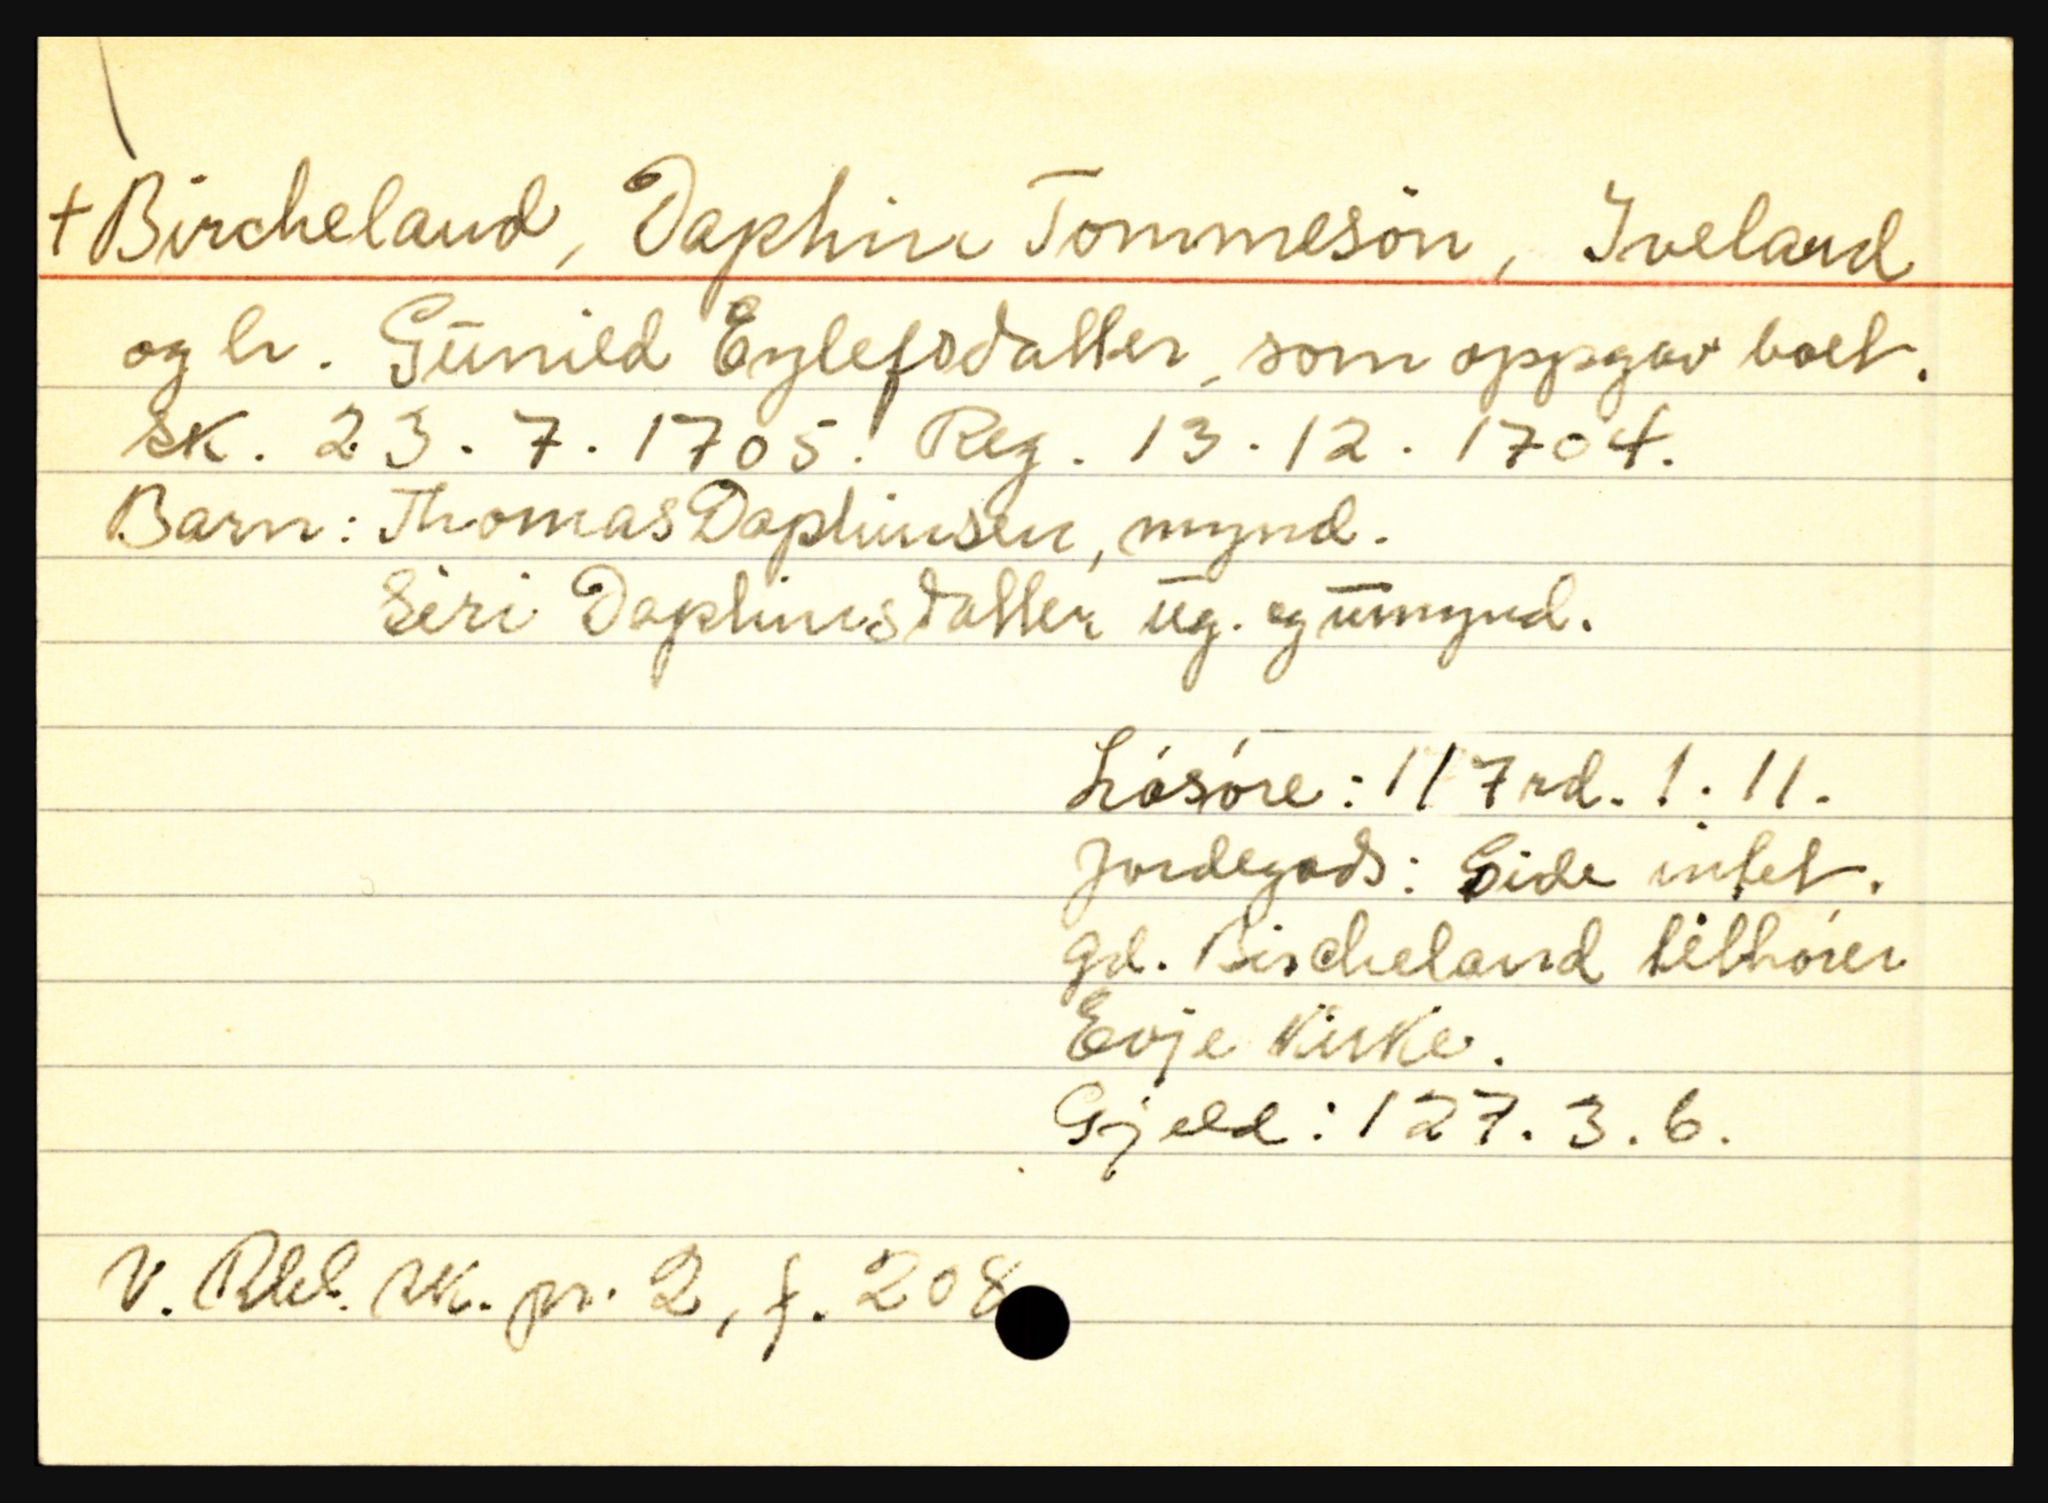 + Bircheland, Daphin Tommesön, Iveland
og h. Gunild Eylefsdatter, som oppgav boet.
Sk. 23.7.1705. Reg. 13.12.1704.
Barn: Thomas Daphinsen, mynd.
Siri Daphinsdatter ug. og umynd.
Lösöre: 117 rd. 1. 11.
Jordegods: Eide intet.
gd. Bircheland tilhörer
Evje kirke.
Gjeld: 127. 3. 6.
V. Rbl. sk. pr. 2, f. 208